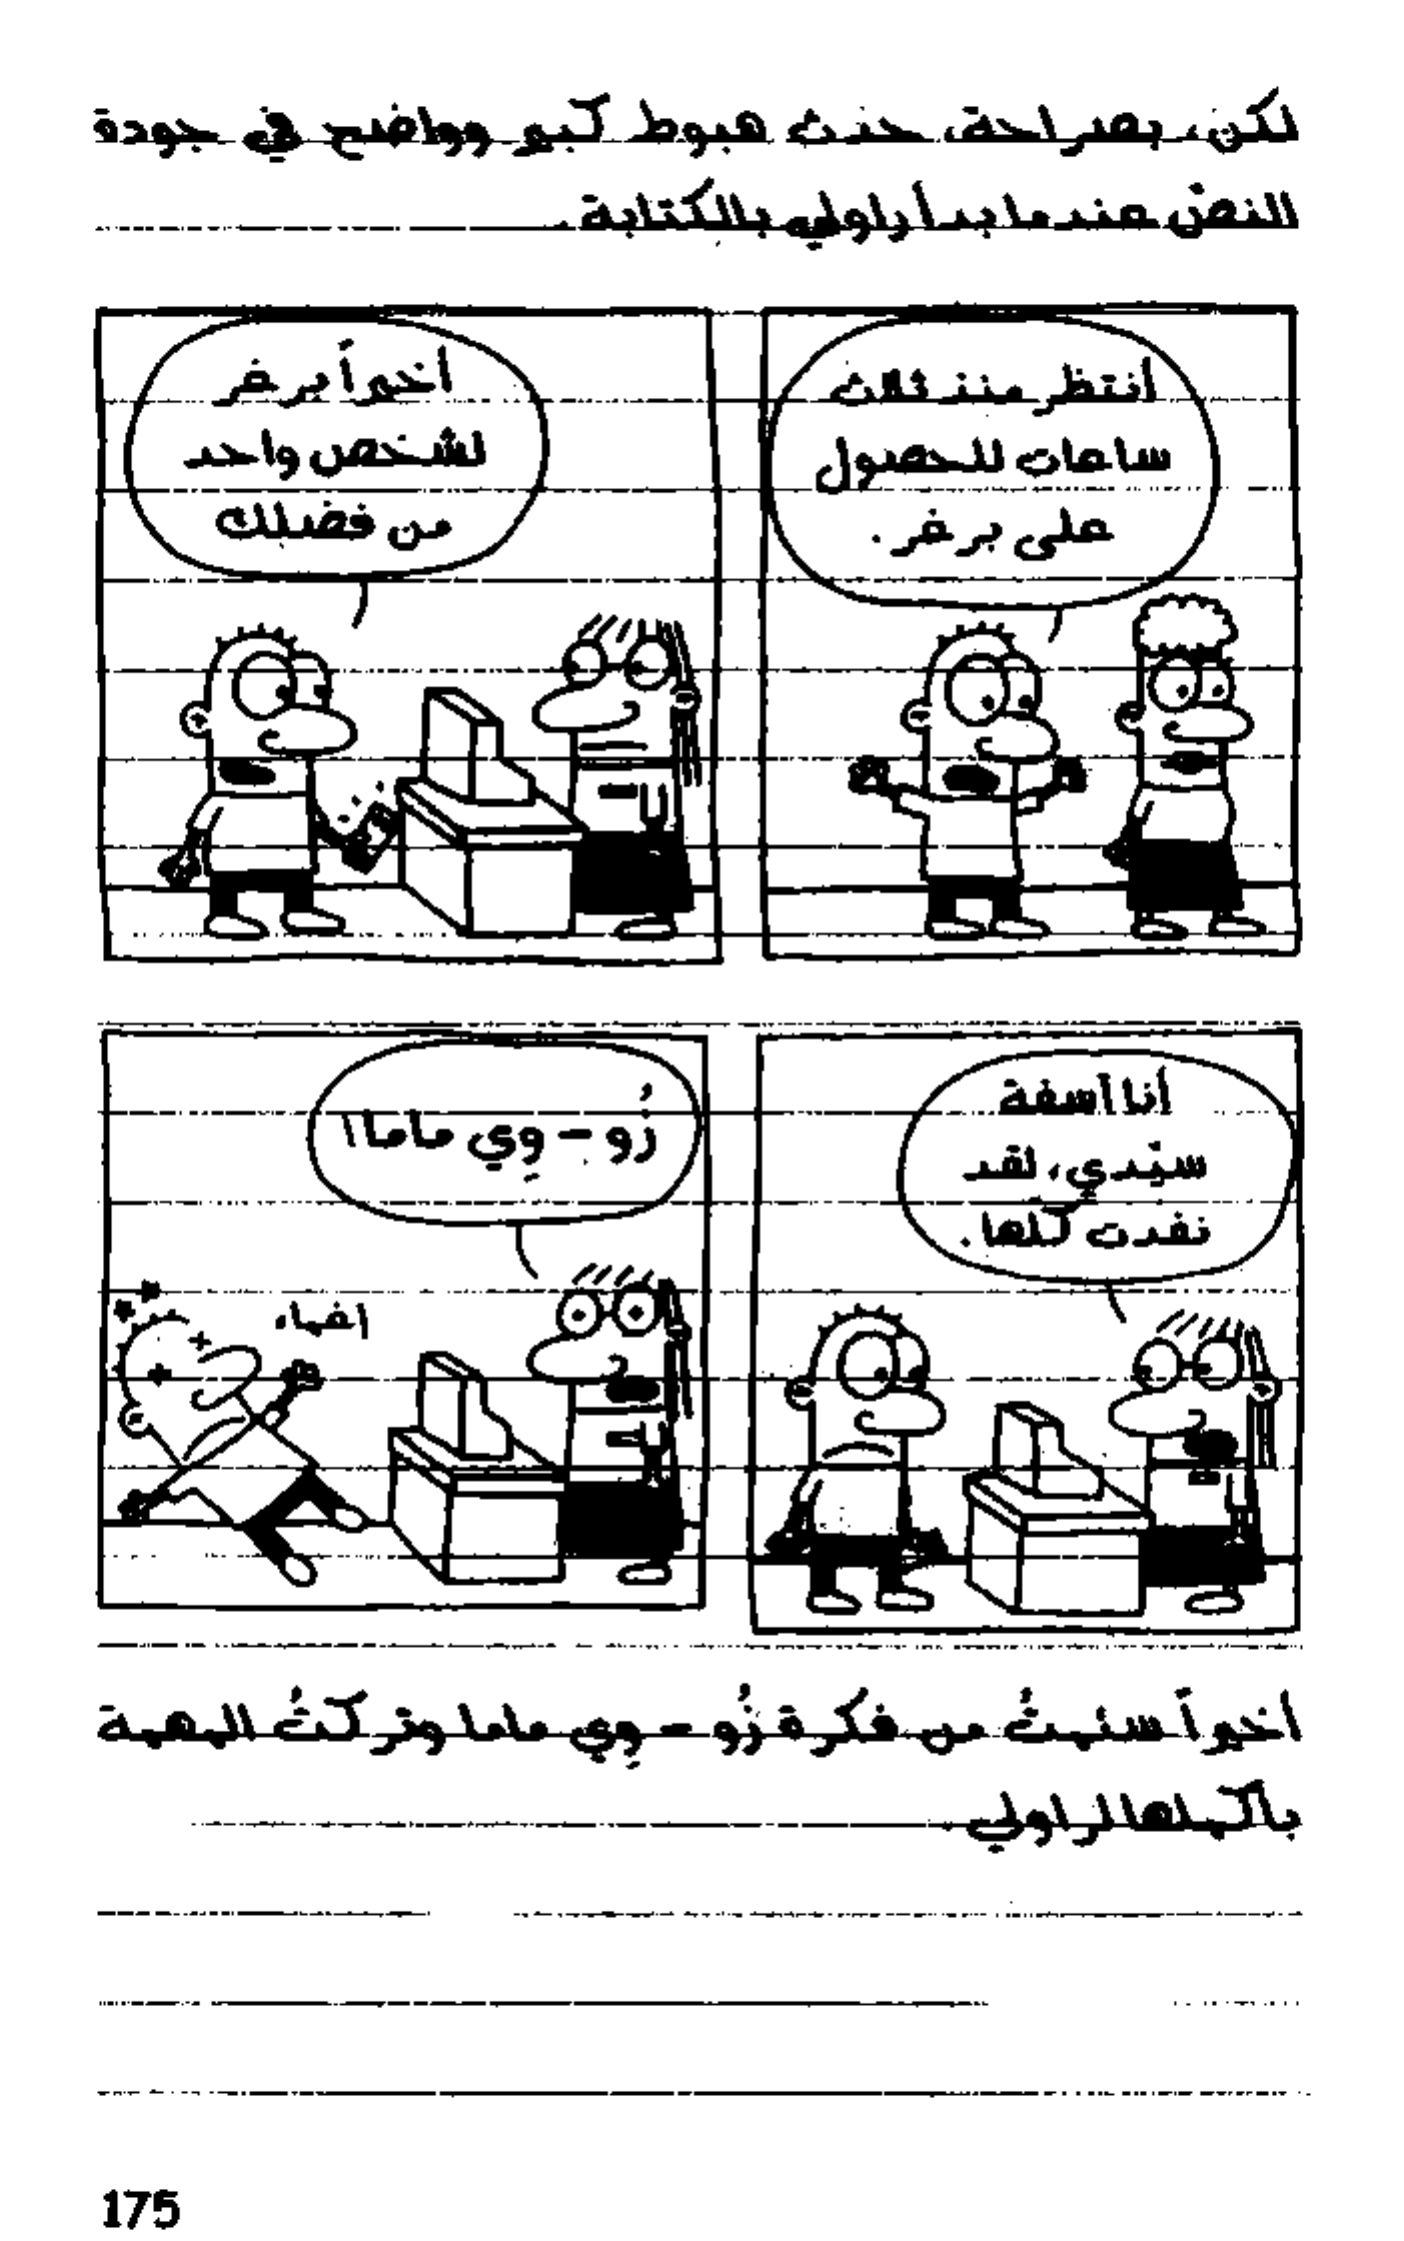 لكن، بصراحة، حدث هبوط كبير وواضح في جودة
النصّ عندما بدأ راولي بالكتابة.
أنتظر منذ ثلاث
ساعات للحصول
على برغر.
أخيراً برغر
لشخص واحد
من فضلك
أنا آسفة
سيّدي، لقد
نفدت كلّها.
زُو - وِي ماما!
إغماء
أخيراً سئمتُ من فكرة زُو - وِي ماما وتركتُ المهمة
بأكملها لراولي.
175